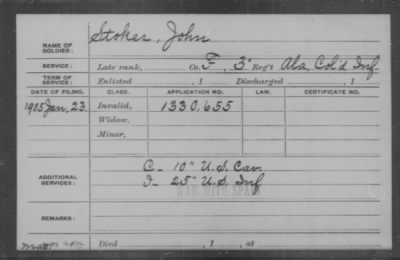 NAME OF SOLDIER: Stoker, John
SERVICE: Late rank, Co. F, 3" Reg't Ala. Col'd Inf.
TERM OF SERVICE: Enlisted , 1 Discharged , 1
DATE OF FILING. CLASS. APPLICATION NO. LAW. CERTIFICATE NO.
1905 Jan. 23. Invalid, 1330,655
Widow,
Minor,
ADDITIONAL SERVICES: C- 10" U.S. Cav.
I- 25" U.S. Inf
REMARKS:
Died , 1 , at